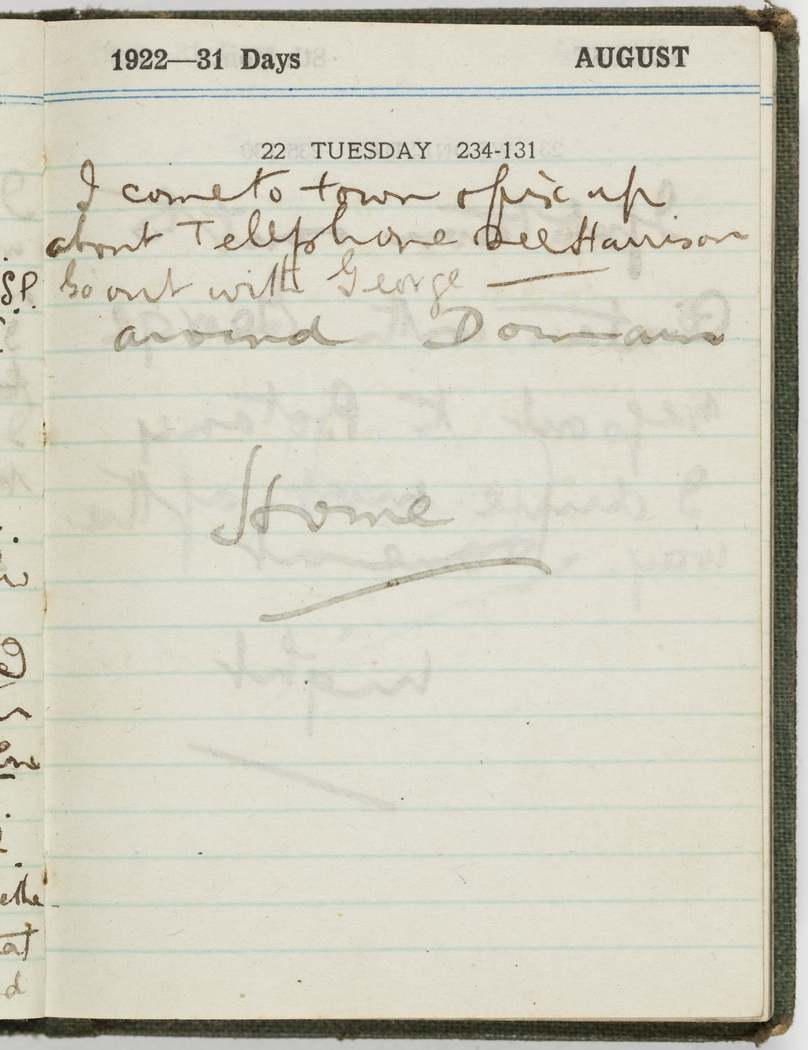 1922—31 Days AUGUST
22 TUESDAY 234-131
I come to town & fix up
about Telephone See Harrison
Go out with George —
around Domain
Home